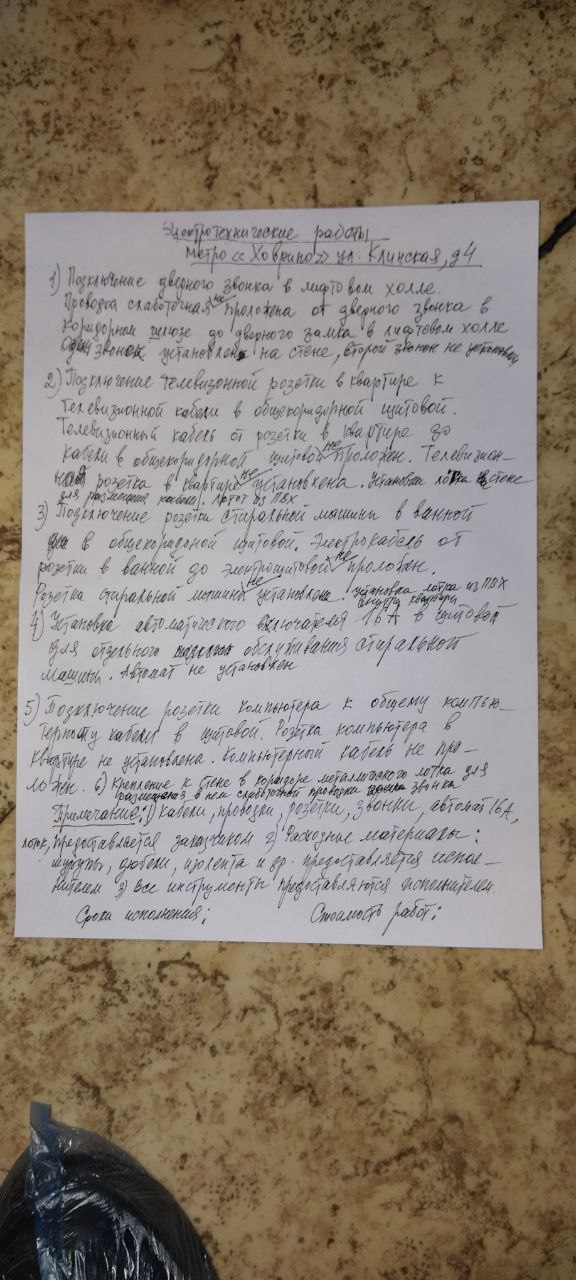 Электротехнические работы
метро «Ховрино» ул. Клинская, д4
1) Подключение дверного звонка в лифтовом холле.
Проводка слаботочная не проложена от дверного звонка в
коридорном шлюзе до дверного замка в лифтовом холле
Один звонок установлен на стене, второй звонок не установлен
2) Подключение телевизонной розетки в квартире к
телевизионной кабели в общекоридорной щитовой.
Телевизионный кабель от розетки в квартире до
кабели в общекоридорной щитовой не проложен. Телевизион-
ная розетка в квартире не установлена. Установка лотка на стене
для размещение кабели. Лоток из ПВХ
3) Подключение розетки стиральной машины в ванной
в общекоридоной щитовой. Электрокабель от
розетки в ванной до электрощитовой не проложен.
Розетка стиральной машины не установлена. установка лотка из ПВХ
внутри квартиры
4) Установка автоматического включателя 16А в щитовой
для отдельного обслуживания стиральной
машины. Автомат не установлен
5) Подключение розетки компьютера к общему компью-
терному кабели в щитовой. Розетка компьютера в
квартире не установлена. Компьютерный кабель не про-
ложен. 6) Крепление к стене в коридоре металлического лотка для
размещения в нем слаботочной проводки звонка
Примечание: 1) Кабели, проводки, розетки, звонки, автомат 16А,
лоток, предоставляется заказчиком 2) Расходные материалы:
шурупы, дюбели, изолента и др. предоставляется испол-
нителем 3) Все инструменты предоставляются исполнителем.
Сроки исполнения: Стоимость работ: